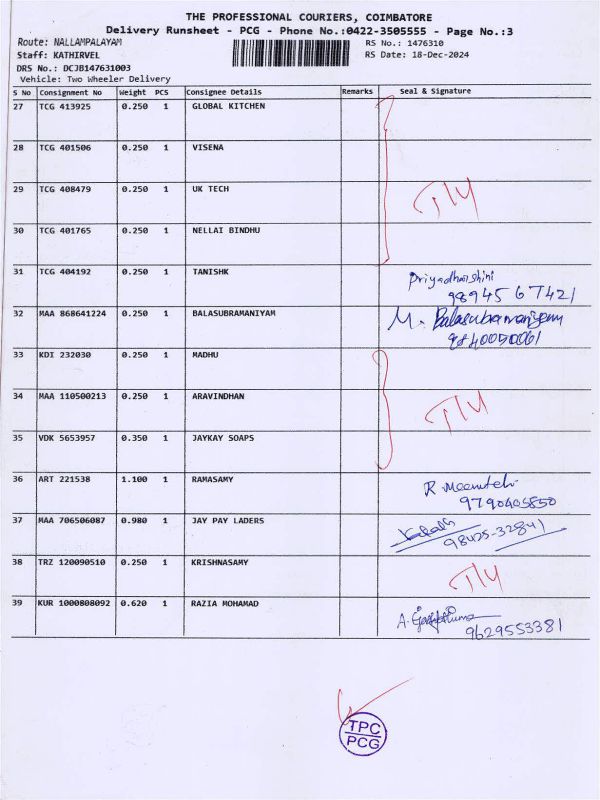 THE PROFESSIONAL COURIERS, COIMBATORE
Delivery Runsheet - PCG - Phone No.:0422-3505555 - Page No.:3
Route: NALLAMPALAYAM
RS No.: 1476310
Staff: KATHIRVEL
RS Date: 18-Dec-2024
DRS No.: DCJB147631003
Vehicle: Two Wheeler Delivery
S No Consignment No Weight PCS Consignee Details Remarks Seal & Signature
27 TCG 413925 0.250 1 GLOBAL KITCHEN
28 TCG 401506 0.250 1 VISENA
29 TCG 408479 0.250 1 UK TECH
30 TCG 401765 0.250 1 NELLAI BINDHU
31 TCG 404192 0.250 1 TANISHK Priyadharshini
98945 67421
32 MAA 868641224 0.250 1 BALASUBRAMANIYAM M. Balasubramaniyam
33 KDI 232030 0.250 1 MADHU
34 MAA 110500213 0.250 1 ARAVINDHAN
35 VDK 5653957 0.350 1 JAYKAY SOAPS
36 ART 221538 1.100 1 RAMASAMY
9790405850
37 MAA 706506087 0.980 1 JAY PAY LADERS
98425-32841
38 TRZ 120090510 0.250 1 KRISHNASAMY
39 KUR 1000808092 0.620 1 RAZIA MOHAMAD
9629553381
TPC
PCG